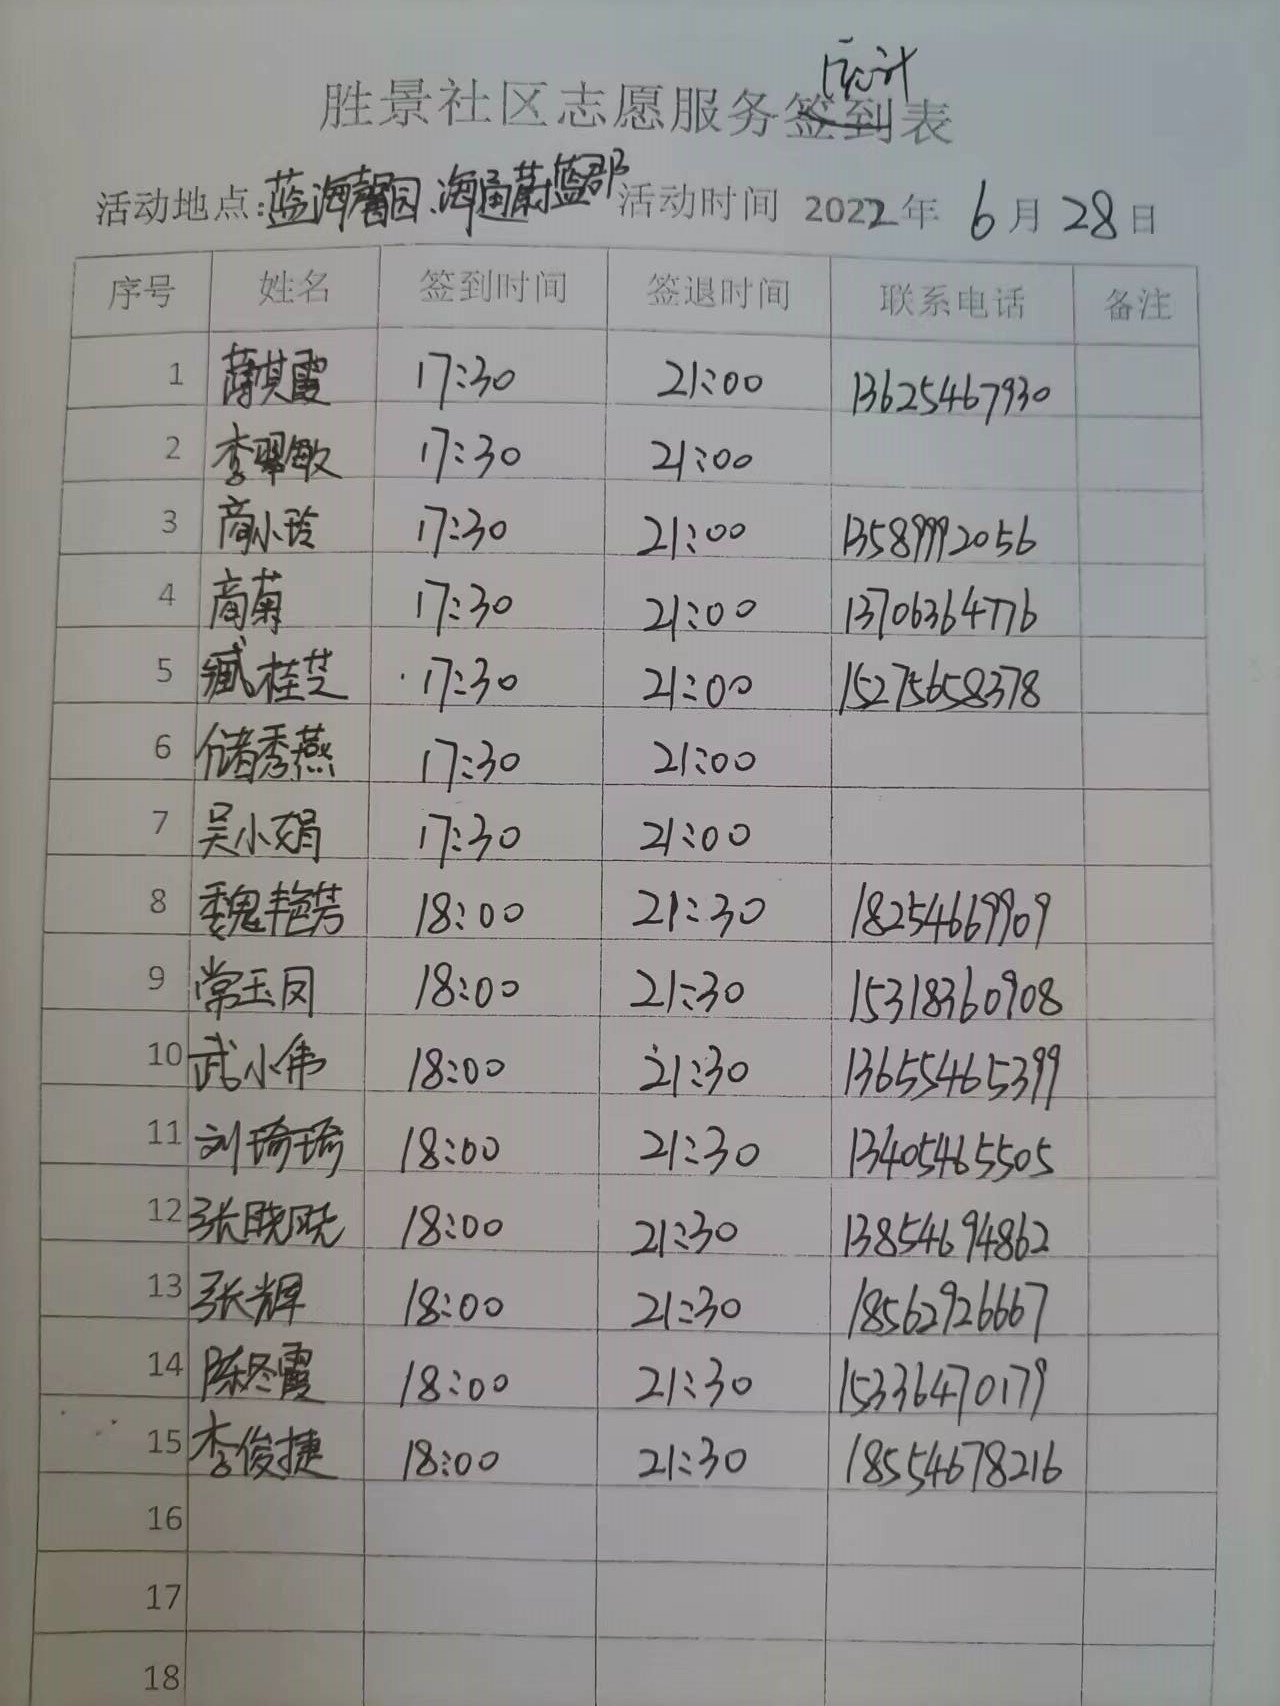 统计
胜景社区志愿服务签到表
活动地点:蓝海馨园、海通蔚蓝郡 活动时间 2022年 6月28日
序号 姓名 签到时间 签退时间 联系电话 备注
1 薛其霞 17:30 21:00 13625467930
2 李翠敏 17:30 21:00
3 商小玲 17:30 21:00 13589992056
4 商菊 17:30 21:00 13706364776
5 臧桂芝 17:30 21:00 15275658378
6 储秀燕 17:30 21:00
7 吴小娟 17:30 21:00
8 魏艳芳 18:00 21:30 18254669909
9 常玉凤 18:00 21:30 15318360908
10 武小伟 18:00 21:30 13655465399
11 刘琦琦 18:00 21:30 13405465505
12 张晓晓 18:00 21:30 13854694862
13 张辉 18:00 21:30 18562926667
14 陈冬霞 18:00 21:30 15336470179
15 李俊捷 18:00 21:30 18554678216
16
17
18